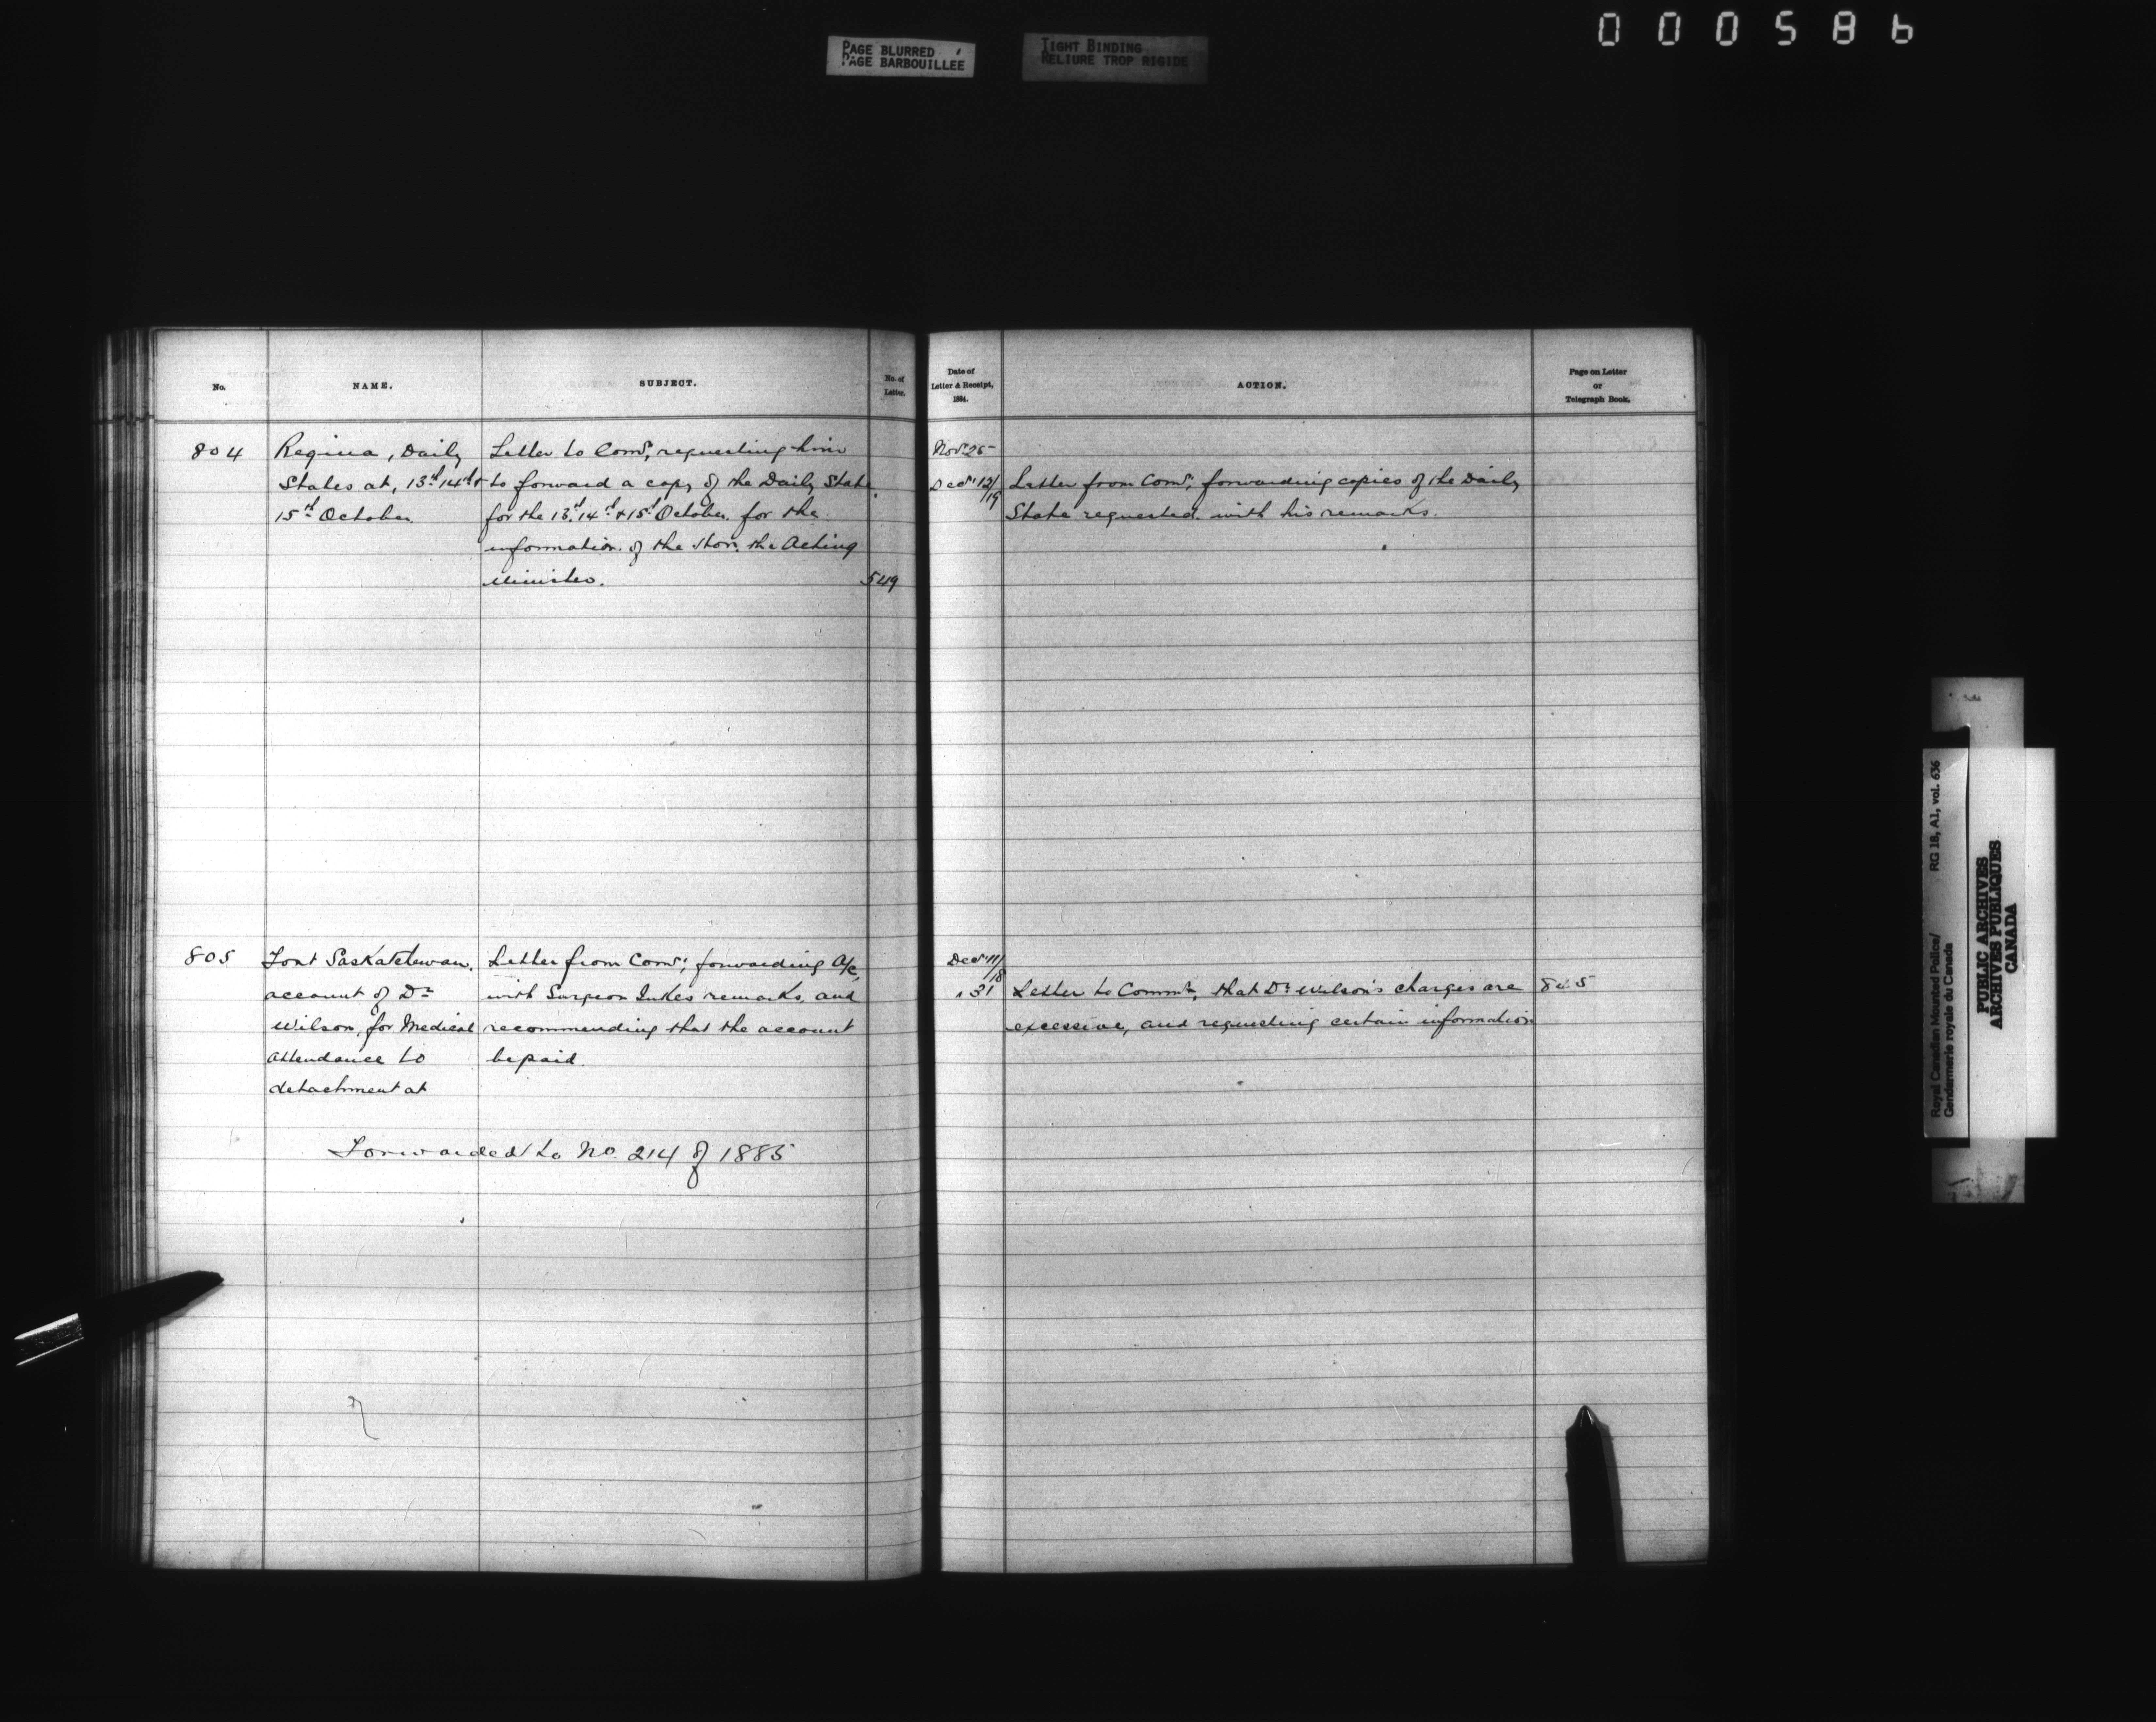 000586
PAGE BLURRED
PAGE BARBOUILLEE
TIGHT BINDING
RELIURE TROP RIGIDE
No.
NAME.
SUBJECT.
No. of
Letter.
804
Regina, Daily
States at, 13th 14th &
15th October
Letter to Comr, requesting him
to forward a copy of the Daily State
for the 13th, 14th & 15th October for the
information of the Hon. the Acting
Minister.
549
805
Fort Saskatchewan.
account of Dr
Wilson, for Medical
attendance to
detachment at
Letter from Comr; forwarding a/c,
with Surgeon Jukes remarks, and
recommending that the account
be paid.
Forwarded to No. 214 of 1885
Date of
Letter & Receipt,
1884.
ACTION.
Page on Letter
or
Telegraph Book.
Novr 25
Decr 12/19
Letter from Comr, forwarding copies of the Daily
State requested. with his remarks.
Decr 11/18
" 31
Letter to Commr, that Dr Wilson's charges are
excessive, and requesting certain information
Royal Canadian Mounted Police/
Gendarmerie royale du Canada
RG 18, A1, vol. 636
PUBLIC ARCHIVES
ARCHIVES PUBLIQUES
CANADA